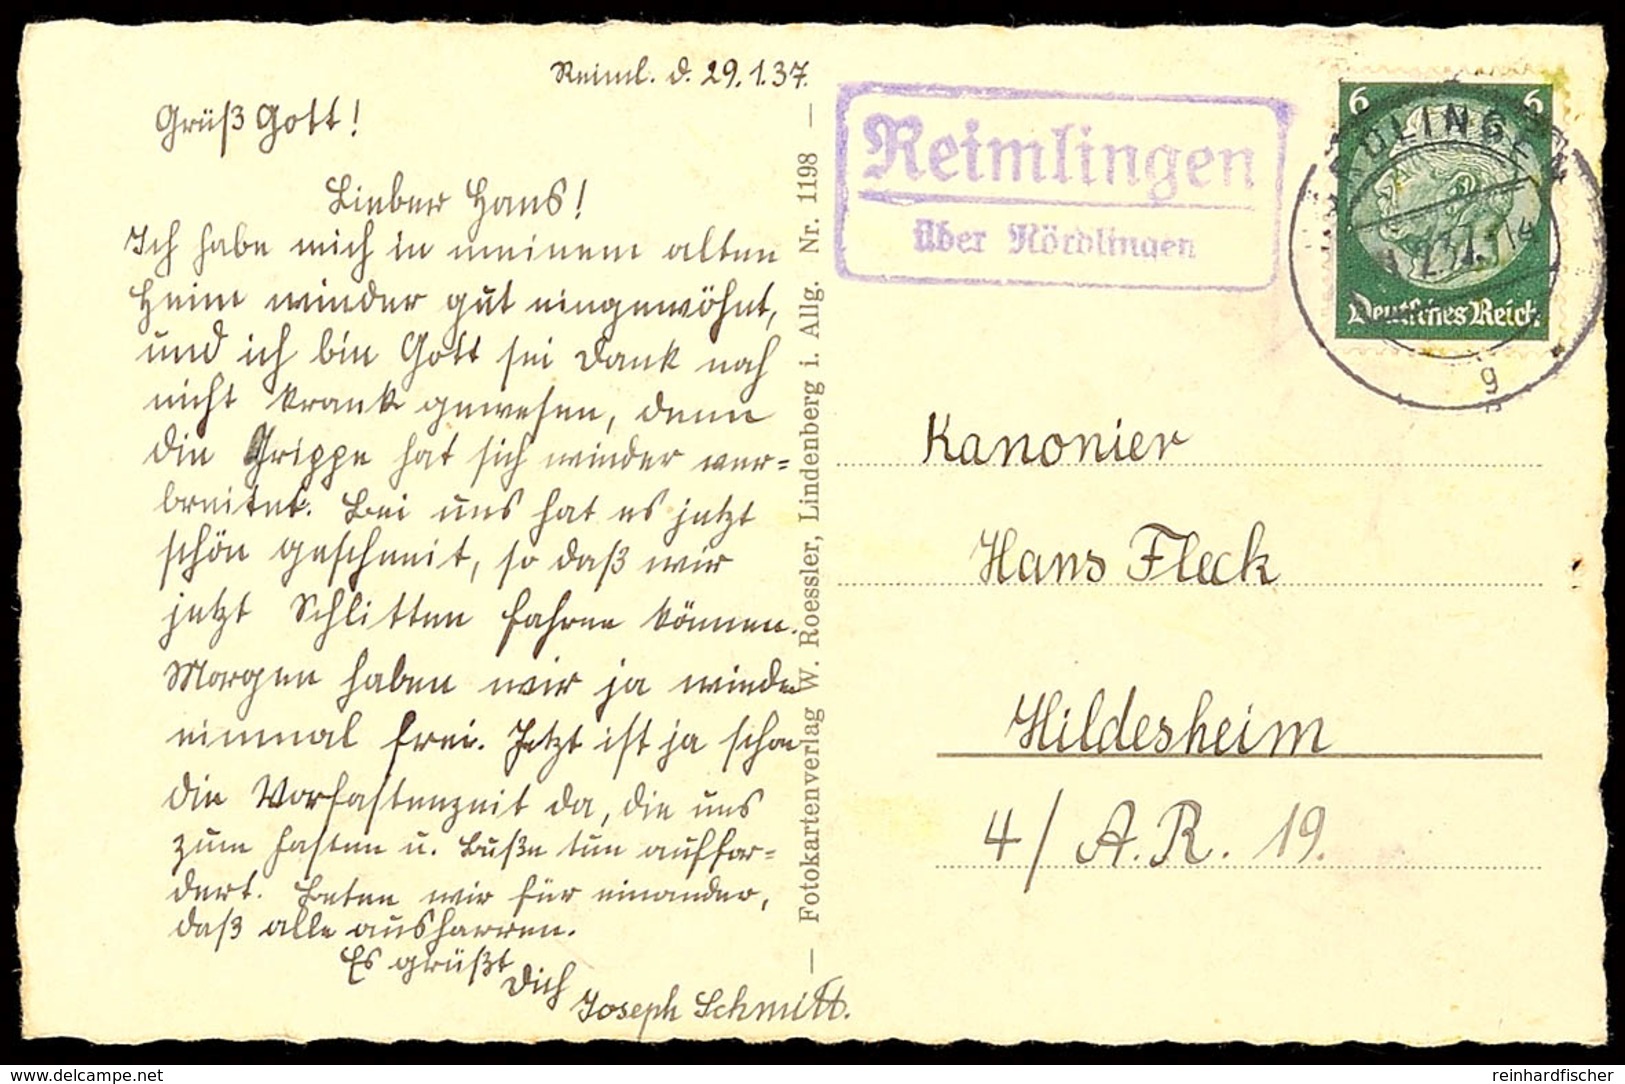 Reiml. d. 29.1.37.
Grüß Gott!
Lieber Hans!
Ich habe mich in meinem alten
Heim wieder gut eingewöhnt,
und ich bin Gott sei Dank noch
nicht krank gewesen, denn
die Grippe hat sich wieder ver=
breitet. Bei uns hat es jetzt
schön geschneit, so daß wir
jetzt Schlitten fahren können.
Morgen haben wir ja wieder
einmal frei. Jetzt ist ja schon
die Vorfastenzeit da, die uns
zum fasten u. Buße tun auffor=
dert. Beten wir für einander,
daß alle ausharren.
Es grüßt
Dich
Joseph Schmitt.
— Fotokartenverlag W. Roessler, Lindenberg i. Allg. Nr. 1198 —
Reimlingen
über Nördlingen
6 6
Deutsches Reich
g
Kanonier
Hans Fleck
Hildesheim
4/ A.R. 19.
www.delcampe.net
reinhardfischer